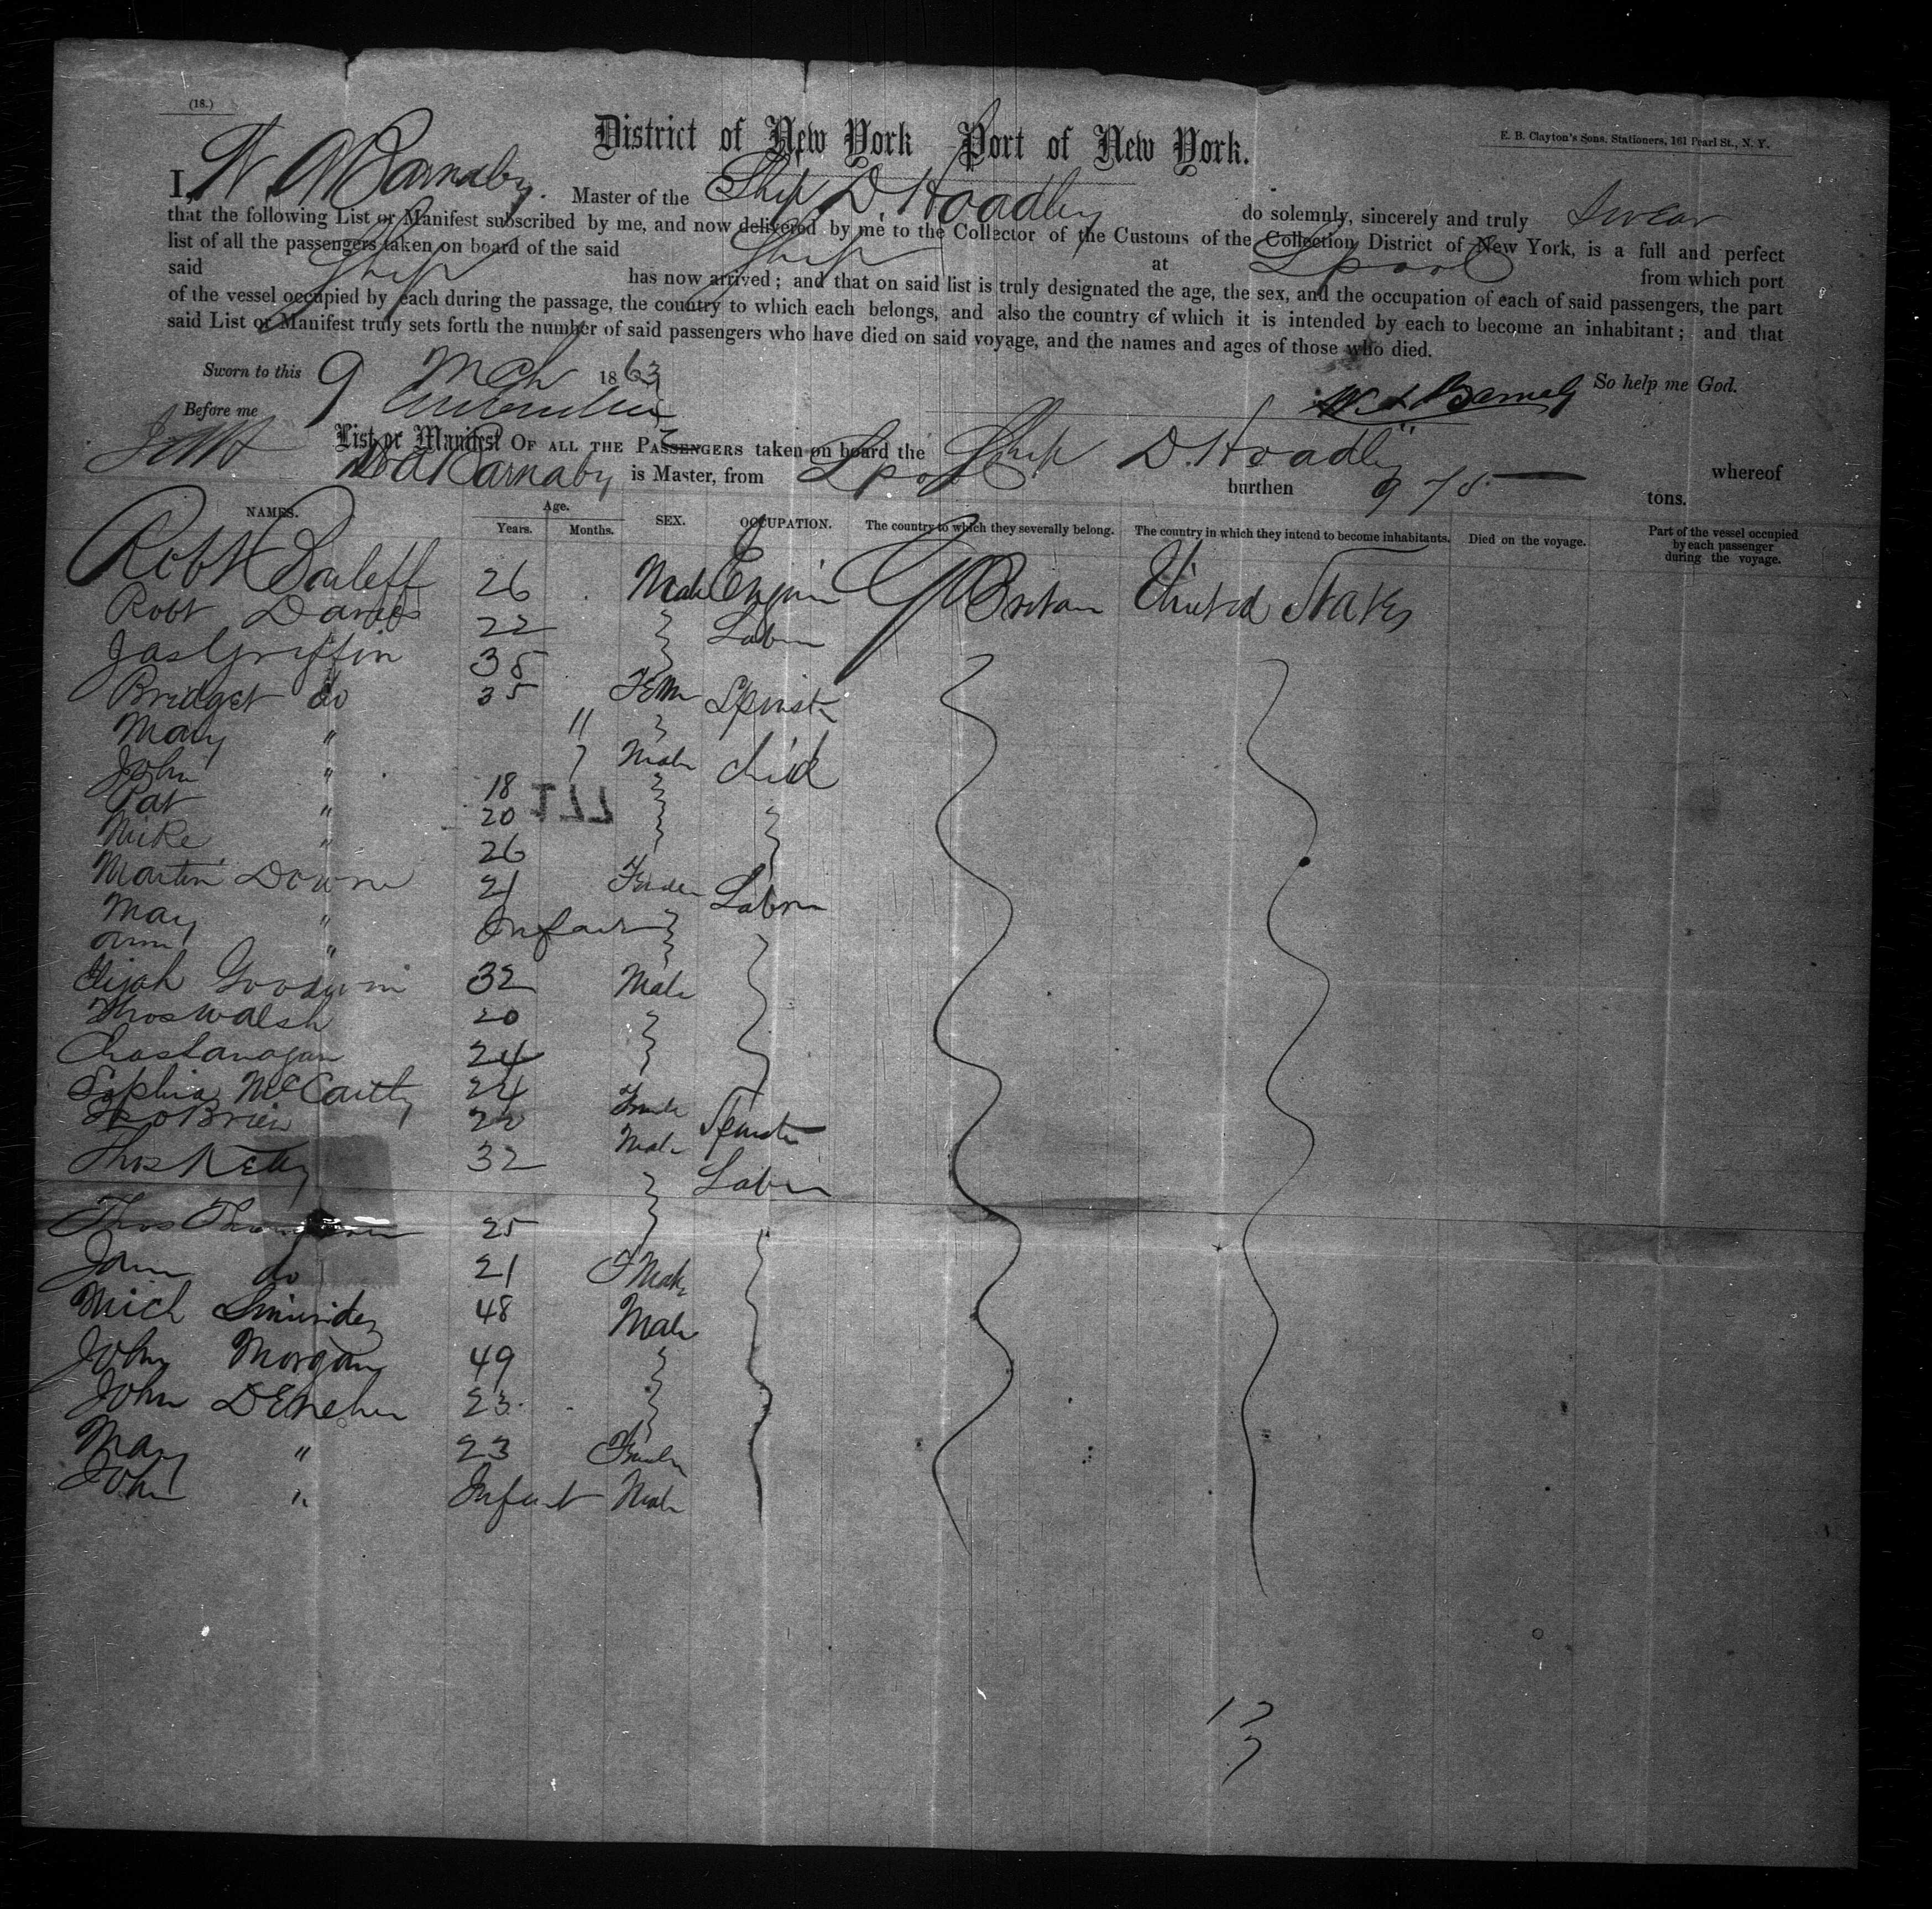 (18.)
District of New York Port of New York.
E. B. Clayton's Sons, Stationers, 161 Pearl St., N. Y.
I, W A Barnaby. Master of the Ship D Hoadley do solemnly, sincerely and truly swear
that the following List or Manifest subscribed by me, and now delivered by me to the Collector of the Customs of the Collection District of New York, is a full and perfect
list of all the passengers taken on board of the said Ship at Lpool from which port
said Ship has now arrived; and that on said list is truly designated the age, the sex, and the occupation of each of said passengers, the part
of the vessel occupied by each during the passage, the country to which each belongs, and also the country of which it is intended by each to become an inhabitant; and that
said List or Manifest truly sets forth the number of said passengers who have died on said voyage, and the names and ages of those who died.
Sworn to this 9 Mch 1863 So help me God.
Before me
List or Manifest OF ALL THE PASSENGERS taken on board the Ship D. Hoadley whereof
W A Barnaby is Master, from Lpool burthen 975 tons.
NAMES. Age. Years. Months. SEX. OCCUPATION. The country to which they severally belong. The country in which they intend to become inhabitants. Died on the voyage. Part of the vessel occupied by each passenger during the voyage.
Robt 26 Male Engin G Britain United States
Robt Davies 22 Labor
Jas Griffin 35
Bridget do 35 Fem Spinst
Mary " 11
John " 7 Male child
Pat " 18
Mike " 20
Martin Downe 26
May " 21 Female Labor
Ann " Infant
Elijah Goodwin 32 Male
Thos Walsh 20
Chas Lanagan 24
Sophia McCarthy 24 Female Spinster
OBrien 22 Male
Thos Kelly 32 Labor
Thos 25
do 21 Fmale
Mich 48 Male
John Morgan 49
John Denehen 23
Mary " 23 Female
John " Infant Male
177
17
7